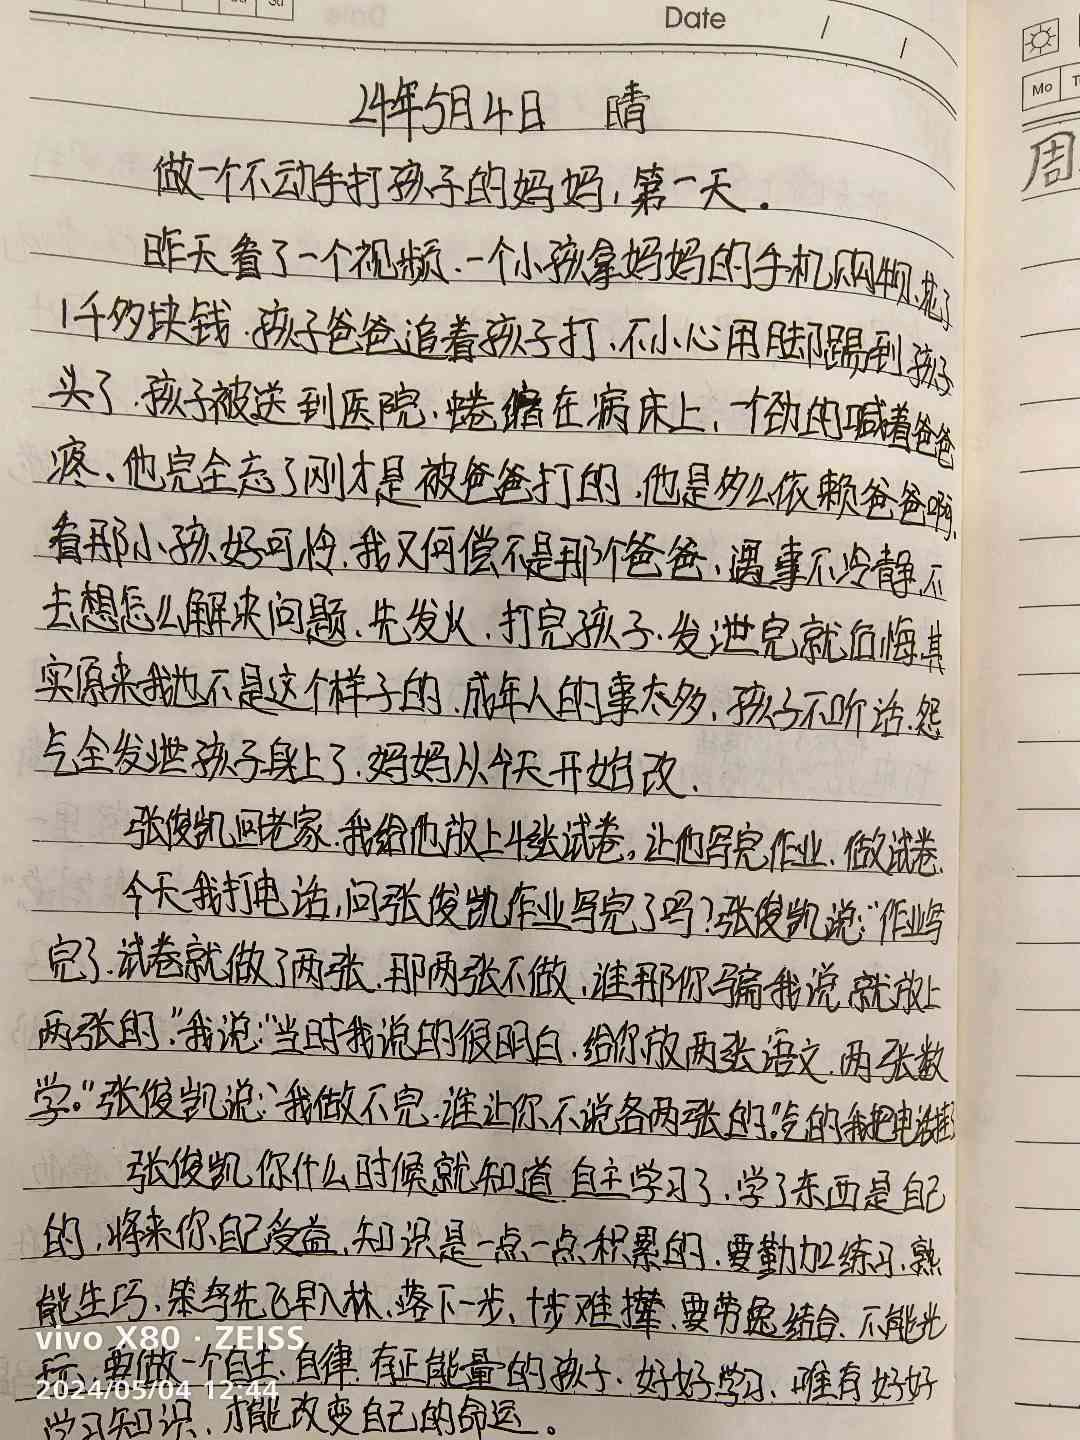 Date / /
24年5月4日 晴
做一个不动手打孩子的妈妈,第一天。
昨天看了一个视频.一个小孩拿妈妈的手机购物,花了
1千多块钱.孩子爸爸追着孩子打、不小心用脚踢到孩子
头了.孩子被送到医院、蜷缩在病床上、一个劲的喊着爸爸
疼、他完全忘了刚才是被爸爸打的.他是多么依赖爸爸啊.
看那小孩好可怜.我又何偿不是那个爸爸、遇事不冷静.不
去想怎么解决问题.先发火.打完孩子.发泄完就后悔.其
实原来我也不是这个样子的.成年人的事太多、孩子不听话.怨
气全发泄孩子身上了.妈妈从今天开始改.
张俊凯回老家.我给他放上4张试卷,让他写完作业.做试卷.
今天我打电话,问张俊凯作业写完了吗?张俊凯说:"作业写
完了.试卷就做了两张.那两张不做,谁那你骗我说就放上
两张的."我说:"当时我说的很明白.给你放两张语文.两张数
学。"张俊凯说:"我做不完.谁让你不说各两张的."气的我把电话挂了
张俊凯你什么时候就知道自主学习了.学了东西是自己
的.将来你自己受益.知识是一点一点积累的.要勤加练习.熟
能生巧、笨鸟先飞早入林、落下一步、十步难撵.要劳逸结合.不能光
玩.要做一个自主.自律.有正能量的孩子.好好学习、唯有好好
学习知识、才能改变自己的命运。
Mo
周
vivo X80 · ZEISS
2024/05/04 12:44